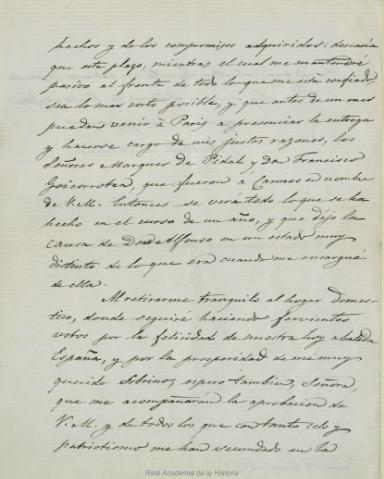 hechos y de los compromisos adquiridos: desearia
que este plazo, mientras el cual me mantendré
pasivo al frente de todo lo que me está confiado,
sea lo mas corto posible, y que antes de un mes
puedan venir à Paris à presenciar la entrega
y hacerse cargo de mis justas razones, los
Señores Marques de Pidal y don Francisco
Goicorrotea, que fueron à Cannes en nombre
de V. M. Entonces se verá todo lo que se ha
hecho en el curso de un año, y que dejo la
causa de Don Alfonso en un estado muy
distinto de lo que era cuando me encargué
de ella.
Al retirarme tranquilo al hogar domes-
tico, donde seguiré haciendo fervientes
votos por la felicidad de nuestra hoy abatida
España, y por la prosperidad de mi muy
querido Sobrino, espero tambien, Señora,
que me acompañarán la aprobacion de
V. M. y de todos los que con tanto celo y
patriotismo me han secundado en la
Real Academia de la Historia